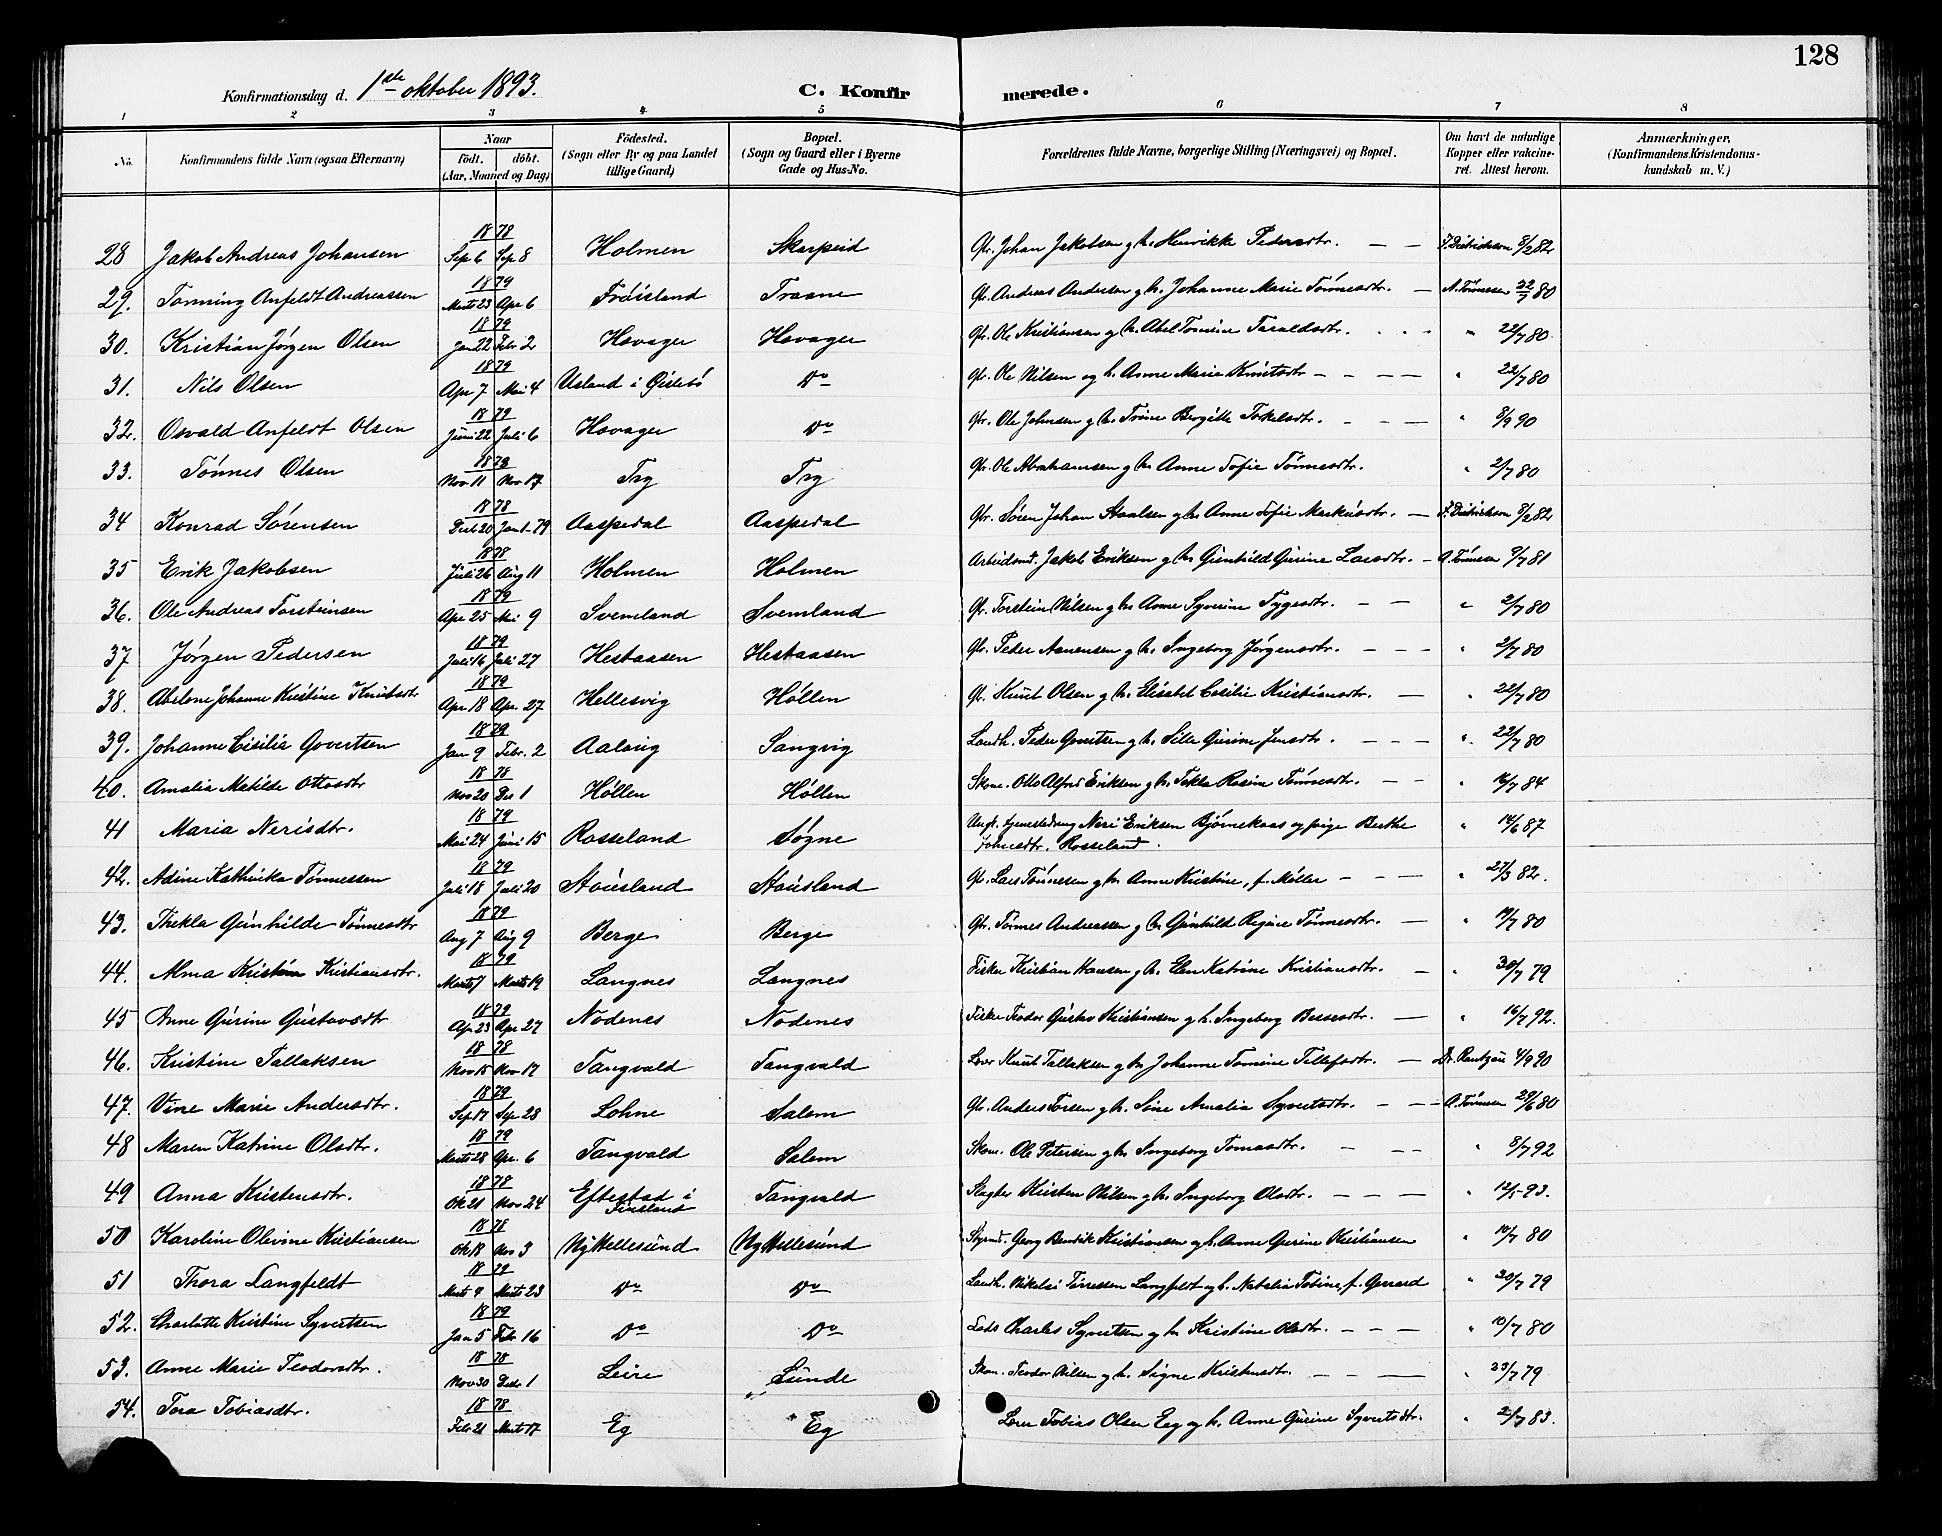 128
Konfirmationsdag d. 1ste oktober 1893.
C. Konfirmerede.
1 2 3 4 5 6 7 8
No. Konfirmandens fulde Navn (ogsaa Efternavn) Naar født. døbt. (Aar, Maaned og Dag) Fødested. (Sogn eller By og paa Landet tillige Gaard) Bopæl. (Sogn og Gaard eller i Byerne Gade og Hus-No. Forældrenes fulde Navne, borgerlige Stilling (Næringsvei) og Bopæl. Om havt de naturlige Kopper eller vakcineret. Attest herom. Anmærkninger, (Konfirmandens Kristendomskundskab m. V.)
28 Jakob Andreas Johansen 1878 Sep 6 Sep 8 Holmen Skarpeid Gbr. Johan Jakobsen g h. Henrikke Pedersdtr. — — 8/2 82
29. Tønning Anfeldt Andreassen 1879 Marts 23 Apr 6 Frøisland Traane Gbr. Andreas Andersen g h. Johanne Marie Tønnesdtr. — A. Tønnesen 22/7 80
30. Kristian Jørgen Olsen 1879 Jan 22 Febr 2 Hovager Hovager Gbr. Ole Kristiansen g h. Abel Tomine Taraldsdtr. " 22/7 80.
31. Nils Olsen 1879 Apr 7 Mai 4 Usland i Øislebø Do Gbr. Ole Nilsen og h. Anne Marie Knutsdtr — — — " 22/7 80
32. Osvald Anfeldt Olsen 1879 Juni 22 Juli 6 Hovager Do Gbr. Ole Johnsen g h. Trine Bergitte Torkelsdtr. — — " 8/9 90
33. Tønnes Olsen 1878 Nov 11 Nov 17 Try Try Gbr. Ole Abrahamsen g h Anne Sofie Tønnesdtr. " 2/7 80
34 Konrad Sørensen 1878 Dec 20 Jan 1. 79 Aaspedal Aaspedal Gbr. Søren Johan Staalsen g h. Anne Sofie Markusdtr. — 8/2 82
35 Erik Jakobsen 1878 Juli 26 Aug 11 Holmen Holmen Arbeidsmd. Jakob Eriksen g h Gunhild Gurine Larsdtr. — A. Tønnesen 9/7 81
36. Ole Andreas Torsteinsen 1879 Apr 25 Mai 9 Svemland Svemland Gbr. Torstein Nilsen g h Anne Syverine Tygesdtr. — — " 2/7 80
37 Jørgen Pedersen 1879 Juli 16 Juli 27 Hestaasen Hestaasen Gbr. Peder Aanensen g h. Ingeborg Jørgensdtr. — — — " 2/7 80
38. Abelone Johanne Kristine Knutsdtr 1879 Apr 18 Apr. 27 Hellesvig Høllen Gbr. Knut Olsen g h. Elisabet Cecilie Kristiansdtr. — " 22/7 80
39. Johanne Cecilia Govertsen 1879 Jan 9 Febr. 2 Aalsvig Langvig Landh. Peder Govertsen g h. Sille Gurine Jensdtr. — — — " 22/7 80
40. Amalia Matilde Ottosdtr 1878 Nov 20 Des 1 Høllen Høllen Skom. Otto Alfred Eriksen g h. Tekla Rasine Tønnesdtr. — — " 16/7 84
41 Maria Nerisdtr. 1879 Mai 24 Juni 15 Rosseland Søgne Ungk. tjenestedreng Neri Eriksen Bjørnekaas og pige Berthe Johnsdtr. Rosseland. " 14/6 87
42. Adine Kathinka Tønnessen 1879 Juli 18 Juli 20 Stausland Stausland Gbr. Lars Tønnesen g h. Anne Kristine, f. Møller — — — " 27/3 82.
43. Thekla Gunhilde Tønnesdtr 1879 Aug 7 Aug 9 Berge Berge Gbr. Tønnes Andreassen g h Gunhild Regine Tønnesdtr. — " 19/7 80
44. Alma Kristine Kristiansdtr. 1879 Marts 7 Marts 19 Langnes Langnes Fisker Kristian Hansen g h. Elen Katrine Kristiansdtr. — " 30/7 79
45 Anne Gurine Gustavsdtr 1879 Ap. 23 Apr 27 Nodenes Nodenes Fisker Teodor Gustav Kristiansen g h. Ingeborg Bessesdtr. — " 16/7 92.
46. Kristine Tallaksen 1878 Nov 15 Nov 17 Tangvald Tangvald Lever Knut Tallaksen g h Johanne Tomine Tellefsdtr. — Dr. Rantzau 4/9 90
47. Vine Marie Andersdtr. 1879 Sep. 17 Sep. 28 Lohne Salem Gbr. Anders Torsen g h. Sine Amalia Syvertsdtr. — — — A. Tønnesen 29/6 80
48 Maren Katrine Olsdtr. 1879 Marts 28 Apr. 6 Tangvald Salem Skom. Ole Petersen g h Ingeborg Tomasdtr. — — " 8/7 92
49 Anna Kristensdtr. 1878 Ok 21 Nov 24 Eftestad i Finsland Tangvald Slagter Kristen Nilsen g h. Ingeborg Olsdtr. — — — " 12/5 93.
50 Karoline Olevine Kristiansen 1878 Ok 18 Nov 3 Ny Hellesund Ny Hellesund Styrmd. Georg Bendik Kristiansen og h. Anne Gurine Kristiansen " 19/7 80
51 Thora Langfeldt 1879 Marts 4 Marts 23 Do Do Landh. Nikolai Terressen Langfeldt og h. Natalia Tobine, f. Gerrard " 30/7 79
52. Charlotte Kristine Syvertsen 1879 Jan 5 Febr 16 Do Do Lods Charles Syvertsen g h Kristine Olsdtr. — — — " 19/7 80
53. Anne Marie Teodorsdtr. 1878 Nov 30 Desr 1 Leire Lunde Skom. Teodor Nilsen g h. Signe Kristensdtr. — — " 23/7 79
54. Tora Tobiasdtr. 1878 Febr 21 Marts 17 Eg Eg Lever Tobias Olsen Eeg og h. Anne Gurine Syvertsdtr. " 2/7 83.